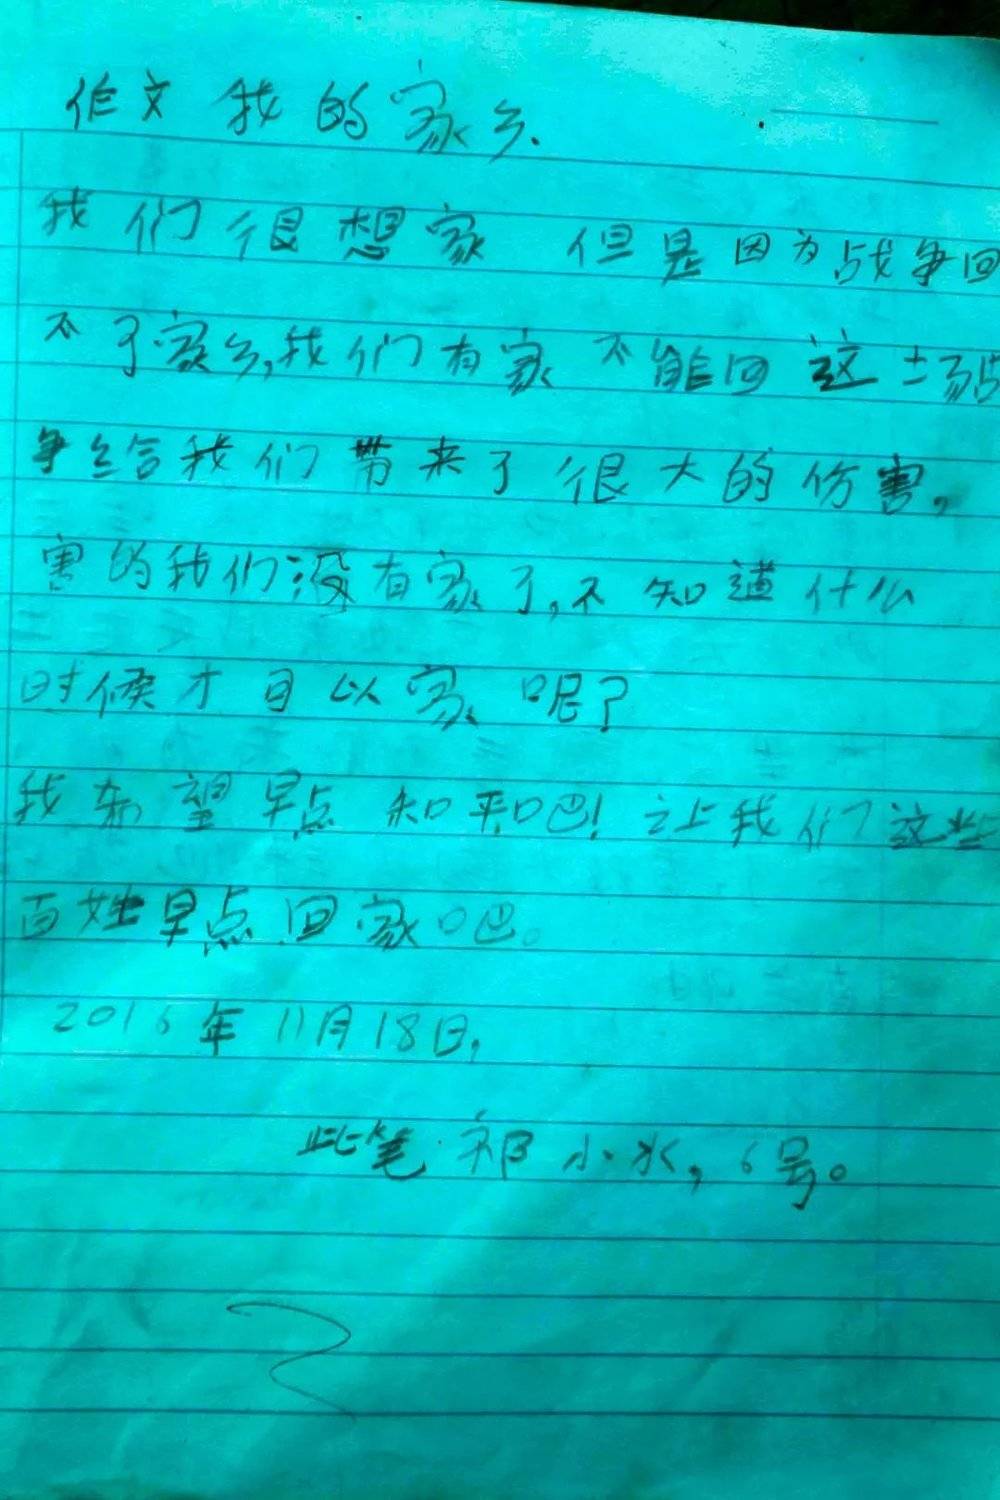 作文 我的家乡.
我们很想家 但是因为战争回
不了家乡,我们有家 不能回 这场战
争给我们带来了很大的伤害,
害的我们没有家了,不知道什么
时候才目以家 呢?
我希望早点 知和吧! 让我们这些
百姓早点回家吧。
2016年11月18日,
此笔·祁小水,6号。